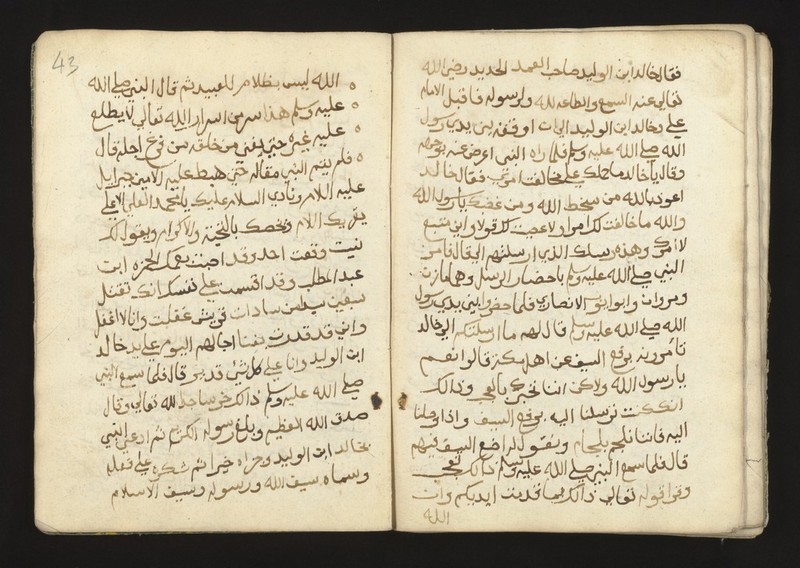 فقال خالد ابن الوليد صاحب العمد الحديد رضي الله
تعالى عنه السمع والطاعه لله ولرسوله فاقبل الامام
علي وخالد ابن الوليد الى ان اوقفه بين يدي رسول
الله صلى الله عليه وسلم فلما راه النبي اعرض عنه بوجهه
وقال يا خالد ما حملك على مخالفت امري فقال خالد
اعوذ بالله من سخط الله ومن غضبك يا رسول الله
والله ما خالفت لك امرا ولا عصيت لك قولا واني متبع
لامرك وهذه رسلك الذي ارسلتهم الي قال فامر
النبي صلى الله عليه وسلم باحضار الرسل وهما
ومروان وابو ايوب الانصاري فلما حضروا بين يدي رسول
الله صلى الله عليه وسلم قال لهم ما ارسلتكم الى خالد
تأمرونه برفع السيف عن اهل مكة قالوا نعم
يا رسول الله ولاكن اننا نخبرك بالعجب وذالك
انك كنت ترسلنا اليه برفع السيف واذا وصلنا
اليه فاننا نلجم بلجام ونقول له اضع السيف فيهم
قال فلما سمع النبي صلى الله عليه وسلم ذالك تعجب
وقرا قوله تعالى ذالك بما قدمت ايديكم وان
الله
43
الله ليس بظلام للعبيد ثم قال النبي صلى الله
عليه وسلم هذا سر من اسرار الله تعالى لا يطلع
عليه غيره حتى يفنى من خلقه من فرغ اجله قال
فلم يتم النبي مقاله حتى هبط عليه الامين جبرايل
عليه السلام ونادى السلام عليك يا محمد العلي الاعلى
يقريك السلام ويخصك بالتحية والاكرام ويقول لك
نسيت وقعت احد وقد اصبت بعمك الحمزه ابن
عبد المطلب وقد اقسمت على نفسك انك تقتل
سبعين سيدا من سادات قريش غفلت وانا لا اغفل
واني قد قدرت بفنا اجالهم اليوم على يد خالد
ابن الوليد وانا على كل شئ قدير قال فلما سمع النبي
صلى الله عليه وسلم ذالك خر ساجدا لله تعالى وقال
صدق الله العظيم وبلغ رسوله الكريم ثم ادعى النبي
بخالد ابن الوليد وجزاه خيرا ثم شكره على فعله
وسماه سيف الله ورسوله وسيف الاسلام